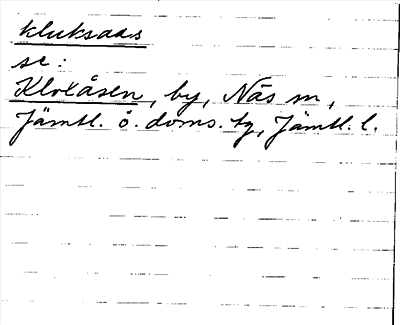 kluksaas
se:
Kloxåsen, by, Näs sn,
Jämtl. ö. doms. tg, Jämtl. l.